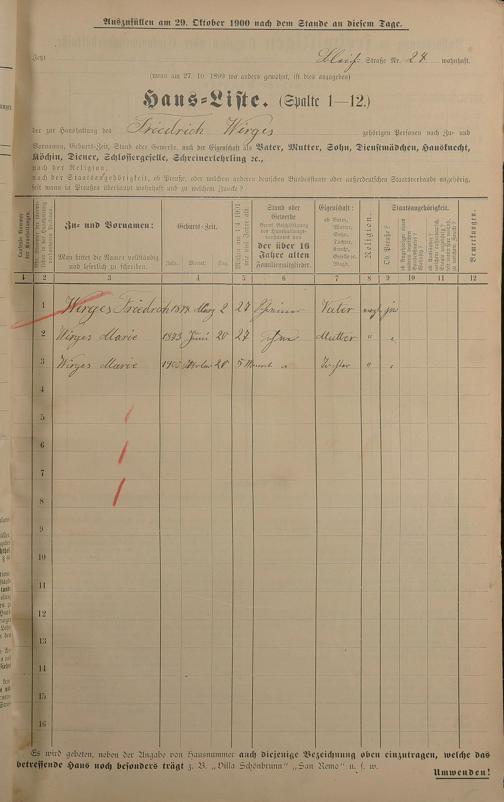 Auszufüllen am 29. Oktober 1900 nach dem Stande an diesem Tage.
Jetzt Straße Nr. 28 wohnhaft.
(wenn am 27. 10. 1899 wo anders gewohnt, ist dies anzugeben)
Haus-Liste. (Spalte 1—12.)
der zur Haushaltung des Friedrich Wirges gehörigen Personen nach Zu- und
Vornamen, Geburts-Zeit, Stand oder Gewerbe, auch der Eigenschaft als Vater, Mutter, Sohn, Dienstmädchen, Hausknecht,
Köchin, Diener, Schlossergeselle, Schreinerlehrling ꝛc.,
nach der Religion,
nach der Staatsangehörigkeit, ob Preuße, oder welchen anderen deutschen Bundesstaate oder außerdeutschen Staatsverbande angehörig,
seit wann in Preußen überhaupt wohnhaft und zu welchem Zwecke?
Zu- und Vornamen:
Man bittet die Namen vollständig und leserlich zu schreiben.
Geburts-Zeit.
Jahr. Monat. Tag.
Stand oder Gewerbe
der über 16 Jahre alten Familienmitglieder.
Eigenschaft:
ob Vater, Mutter, Sohn, Tochter,
Religion.
Staatsangehörigkeit.
Ob Preuße?
Bemerkungen.
1 2 3 4 5 6 7 8 9 10 11 12
1 Wirges Friedrich 1873 März 2 27 Schreiner Vater evgl. ja
2 Wirges Marie 1873 Juni 20 27 Mutter " "
3 Wirges Marie 1900 28 5 Monat Tochter " "
4
5
6
7
8
9
10
11
12
13
14
15
16
Es wird gebeten, neben der Angabe von Hausnummer auch diejenige Bezeichnung oben einzutragen, welche das
betreffende Haus noch besonders trägt z. B. „Villa Schönbrunn" „San Remo" u. s. w.
Umwenden!